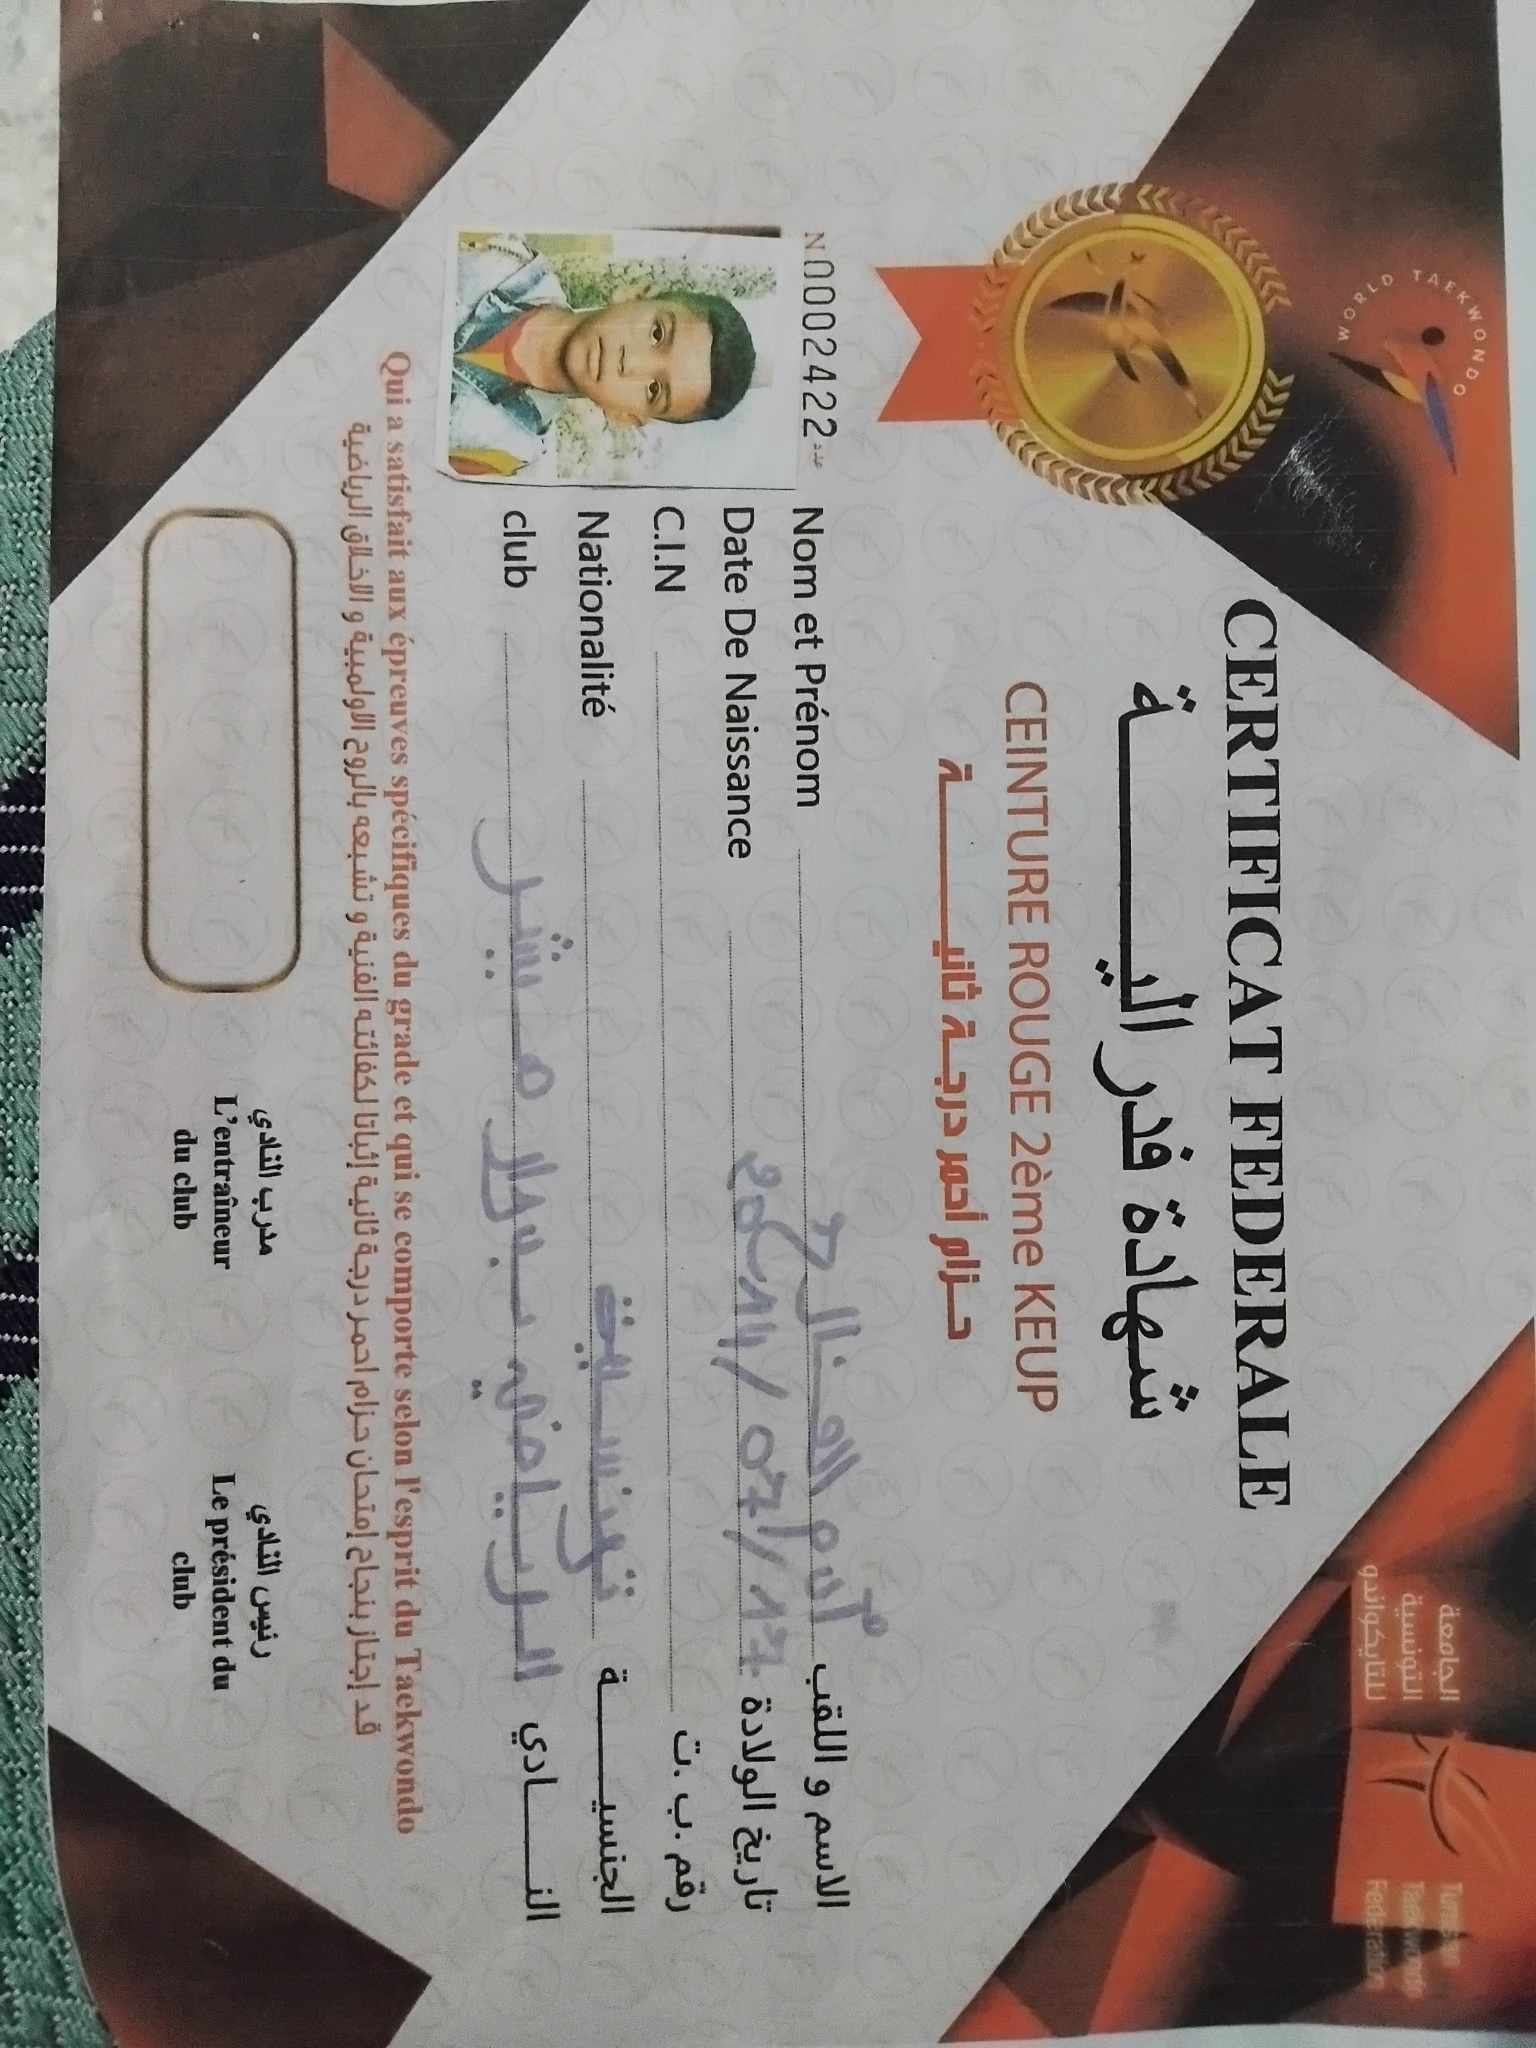 WORLD TAEKWONDO
الجامعة
التونسية
للتايكواندو
Tunisian
Taekwondo
Federation
CERTIFICAT FEDERALE
شهادة فدراليــــــة
CEINTURE ROUGE 2ème KEUP
حزام أحمر درجة ثانيــــــة
N 0002422 عدد
Nom et Prénom الاسم و اللقب
Date De Naissance 2011/07/17 تاريخ الولادة
C.I.N رقم .ب .ت
Nationalité تونسية الجنسيــــــة
club النــــادي
Qui a satisfait aux épreuves spécifiques du grade et qui se comporte selon l'esprit du Taekwondo
قد إجتاز بنجاح إمتحان حزام احمر درجة ثانية إثباتا لكفائته الفنية و تشبعه بالروح الاولمبية و الاخلاق الرياضية
مدرب النادي
L'entraîneur
du club
رئيس النادي
Le président du
club